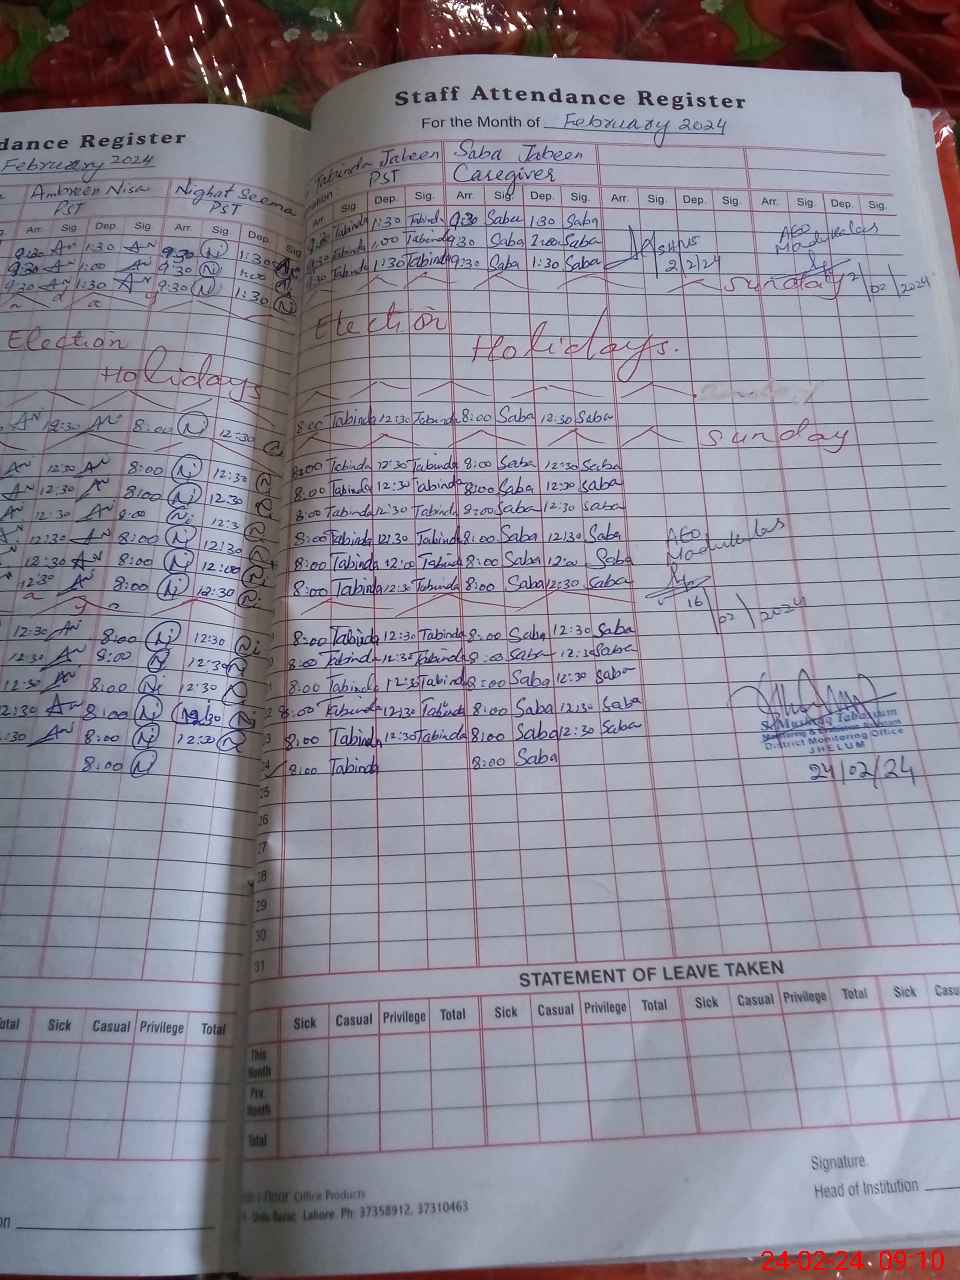 dance Register
February 2024
Ambreen Nisa
Nighat Seema
PST
PST
Arr. Sig Dep. Sig Arr. Sig. Dep. Sig
9:30 AN 1:30 AN 9:30 Ni 1:30
9:30 AN 1:00 AN 9:30 N 1:00
9:30 AN 1:30 AN 9:30 N 1:30 Ni
Election
Holidays
AN 12:30 AN 8:00 N 12:30
AN 12:30 AN 8:00 Ni 12:30 N
AN 12:30 AN 8:00 Ni 12:30
AN 12:30 AN 8:00 Ni 12:3 N
12:30 AN 8:00 Ni 12:30 N
12:30 AN 8:00 Ni 12:00 Ni
12:30 AN 8:00 Ni 12:30 Ni
12:30 AN 8:00 Ni 12:30 Ni
12:30 AN 8:00 N 12:30 N
12:30 AN 8:00 Ni 12:30 N
12:30 AN 8:00 Ni 12:30 N
:30 AN 8:00 Ni 12:30 N
8:00 N
otal Sick Casual Privilege Total
on
Staff Attendance Register
For the Month of February 2024
Tabinda Jabeen
Saba Jabeen
PST
Caregiver
Arr. Sig. Dep. Sig. Arr. Sig. Dep. Sig. Arr. Sig. Dep. Sig. Arr. Sig. Dep. Sig.
9:30 Tabinda 1:30 Tabinda 9:30 Saba 1:30 Saba
9:30 Tabinda 1:00 Tabinda 9:30 Saba 2:00 Saba
9:30 Tabinda 1:30 Tabinda 9:30 Saba 1:30 Saba
2/2/24
AEO
Sunday
2/02/2024
Election
Holidays.
8:00 Tabinda 12:30 Tabinda 8:00 Saba 12:30 Saba
Sunday
8:00 Tabinda 12:30 Tabinda 8:00 Saba 12:30 Saba
8:00 Tabinda 12:30 Tabinda 8:00 Saba 12:30 Saba
8:00 Tabinda 12:30 Tabinda 8:00 Saba 12:30 Saba
8:00 Tabinda 12:30 Tabinda 8:00 Saba 12:30 Saba
8:00 Tabinda 12:00 Tabinda 8:00 Saba 12:00 Saba
8:00 Tabinda 12:30 Tabinda 8:00 Saba 12:30 Saba
AEO
16/02/2024
8:00 Tabinda 12:30 Tabinda 8:00 Saba 12:30 Saba
8:00 Tabinda 12:30 Tabinda 8:00 Saba 12:30 Saba
8:00 Tabinda 12:30 Tabinda 8:00 Saba 12:30 Saba
8:00 Tabinda 12:30 Tabinda 8:00 Saba 12:30 Saba
8:00 Tabinda 12:30 Tabinda 8:00 Saba 12:30 Saba
24 8:00 Tabinda 8:00 Saba
District Monitoring Office
JHELUM
24/02/24
25
26
27
28
29
30
31
STATEMENT OF LEAVE TAKEN
Sick Casual Privilege Total Sick Casual Privilege Total Sick Casual Privilege Total Sick Casu
This
Month
Prv.
Month
Total
Signature.
Head of Institution
Office Products
Lahore. Ph: 37358912, 37310463
24-02-24 09:10